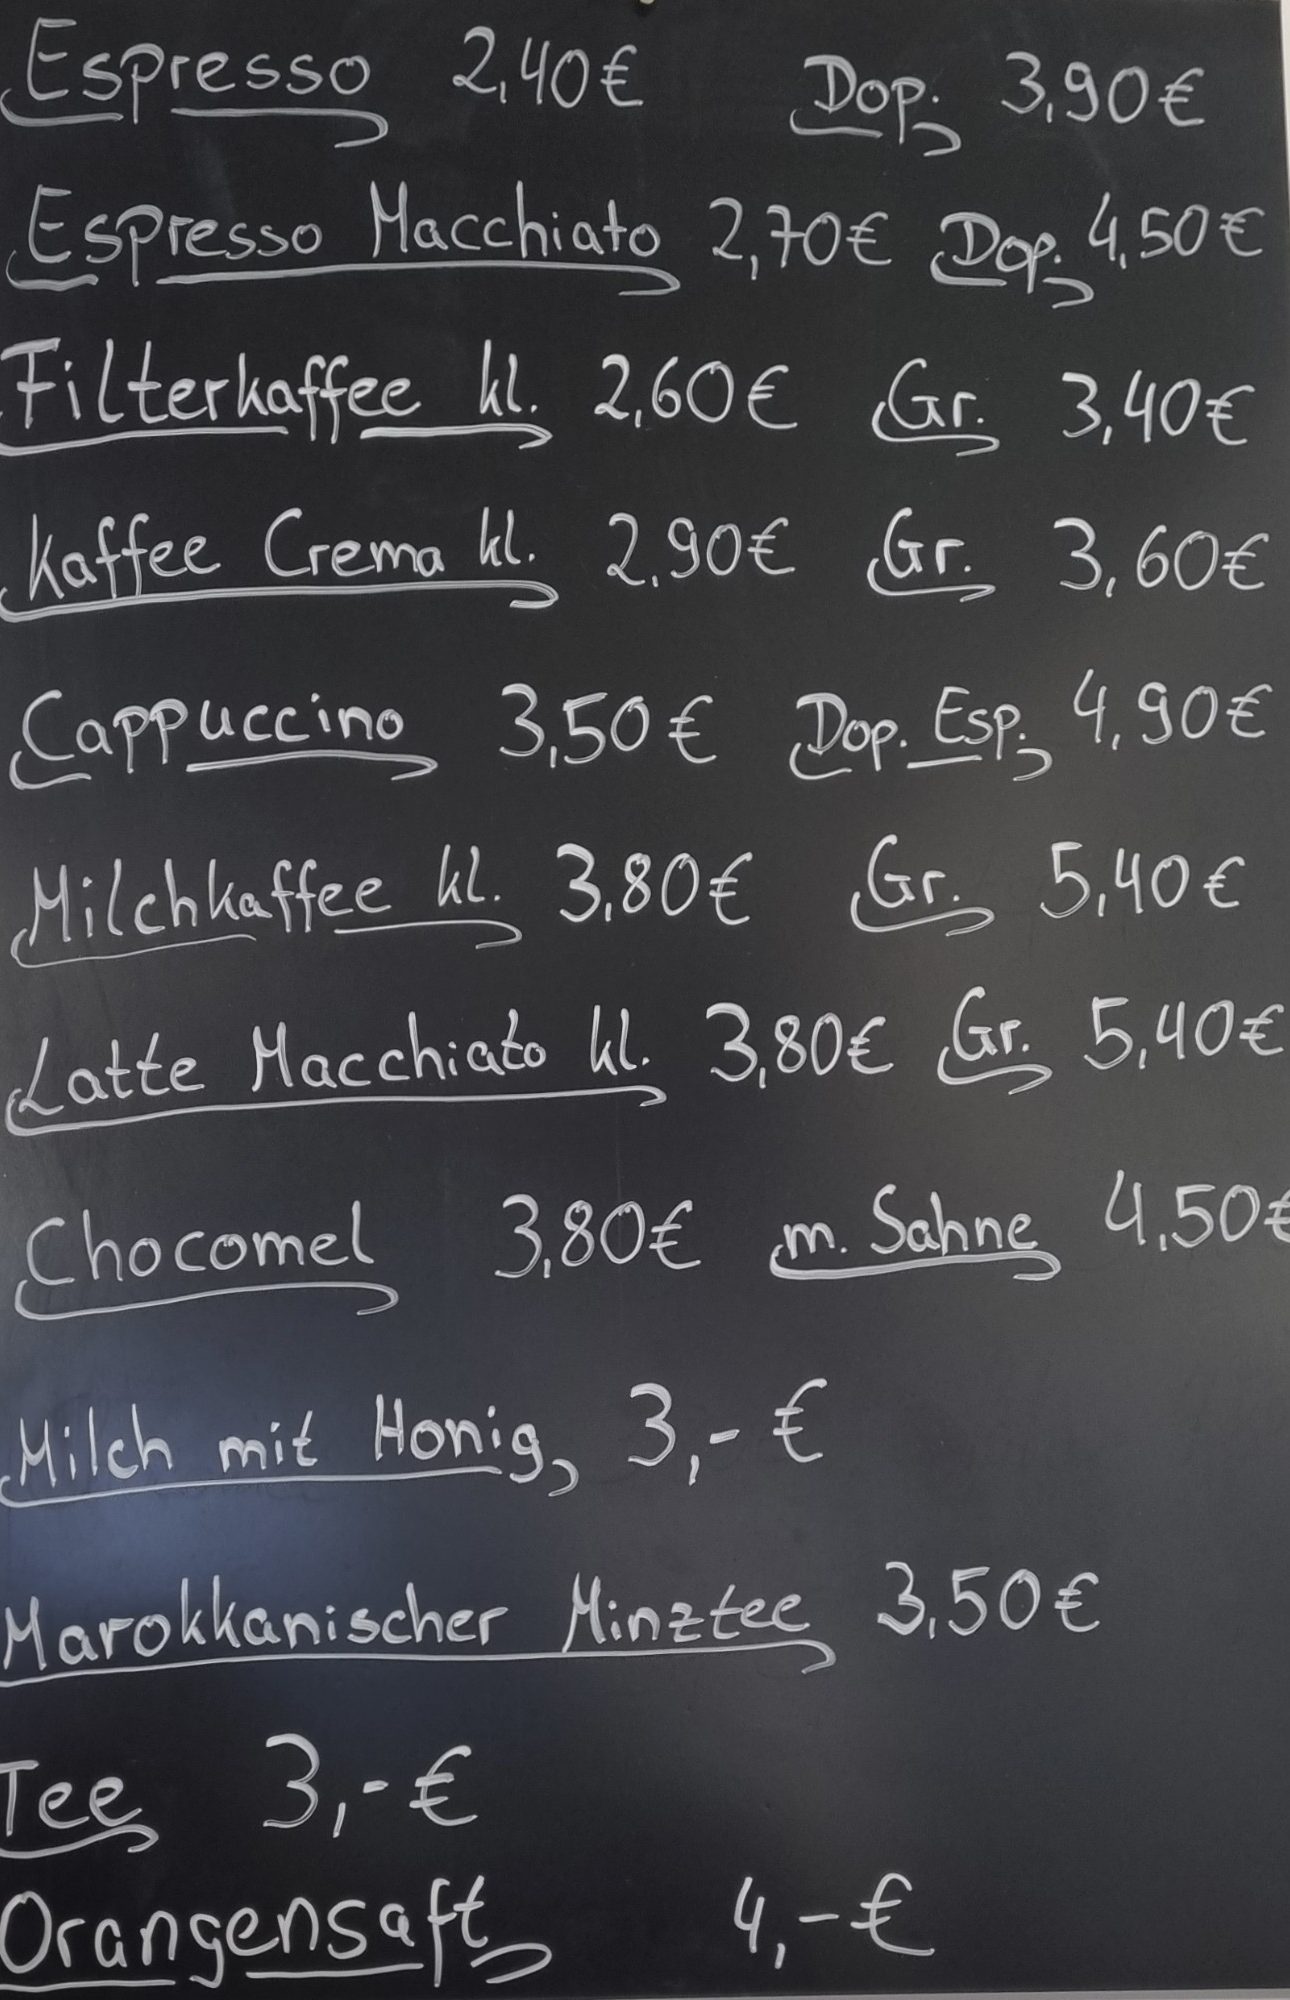 Espresso 2,40€ Dop. 3,90€
Espresso Macchiato 2,70€ Dop. 4,50€
Filterkaffee kl. 2,60€ Gr. 3,40€
Kaffee Crema kl. 2,90€ Gr. 3,60€
Cappuccino 3,50€ Dop. Esp. 4,90€
Milchkaffee kl. 3,80€ Gr. 5,40€
Latte Macchiato kl. 3,80€ Gr. 5,40€
Chocomel 3,80€ m. Sahne 4,50€
Milch mit Honig 3,- €
Marokkanischer Minztee 3,50€
Tee 3,- €
Orangensaft 4,- €